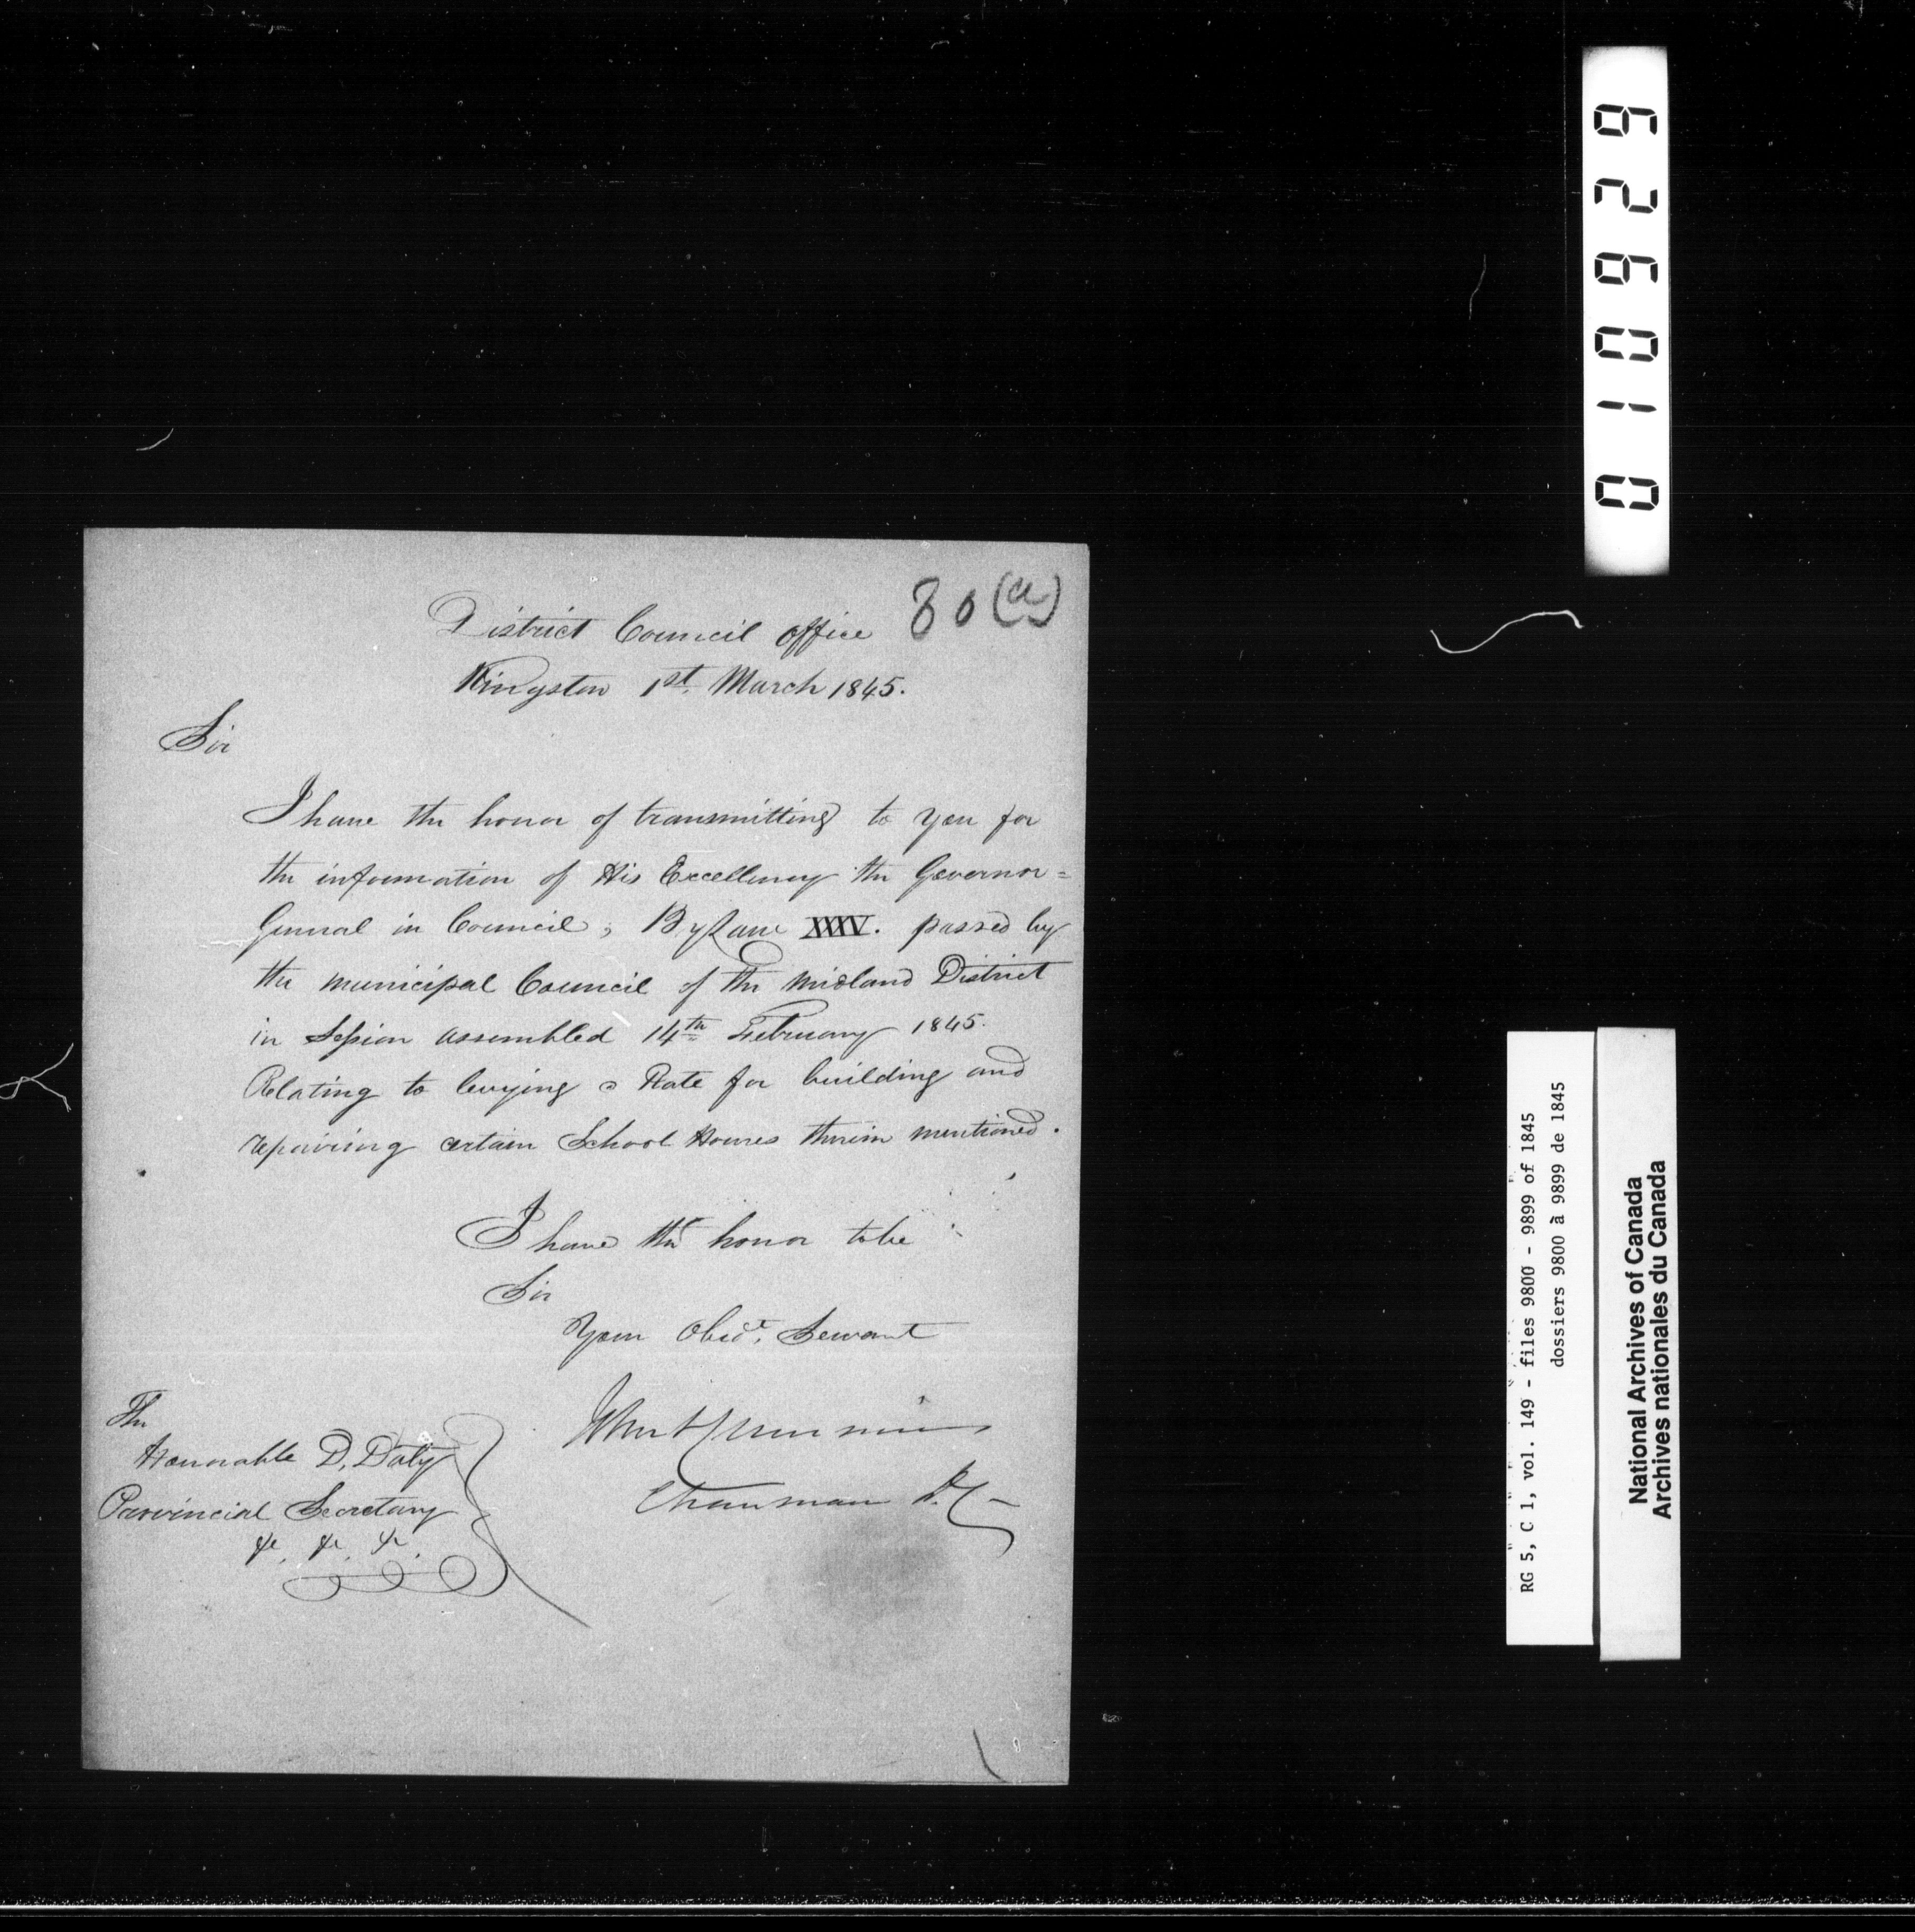 80 (a)
District Council office
Kingston 1st March 1845.
Sir
I have the honor of transmitting to you for
the information of His Excellency the Governor=
General in Council, By Law XXXV. passed by
the municipal Council of the Midland District
in Session assembled 14th February 1845.
Relating to levying a Rate for building and
repairing certain School Houses therein mentioned.
I have the honor to be
Sir
Your Obedt. Servant
Chairman
The
Honorable D. Daly
Provincial Secretary
&c. &c. &c.
010629
RG 5, C 1, vol. 149 - files 9800 - 9899 of 1845
dossiers 9800 à 9899 de 1845
National Archives of Canada
Archives nationales du Canada